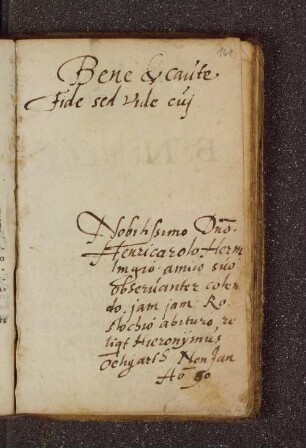 161
Bene & caute
Fide sed vide cuj
Nobilissimo Dno.
Henricarolo Herm
amico suo
observanter colen
do, jam jam Ro
stochio abituro, re
liqt Hieronÿmus
Non Jan
Ao 90